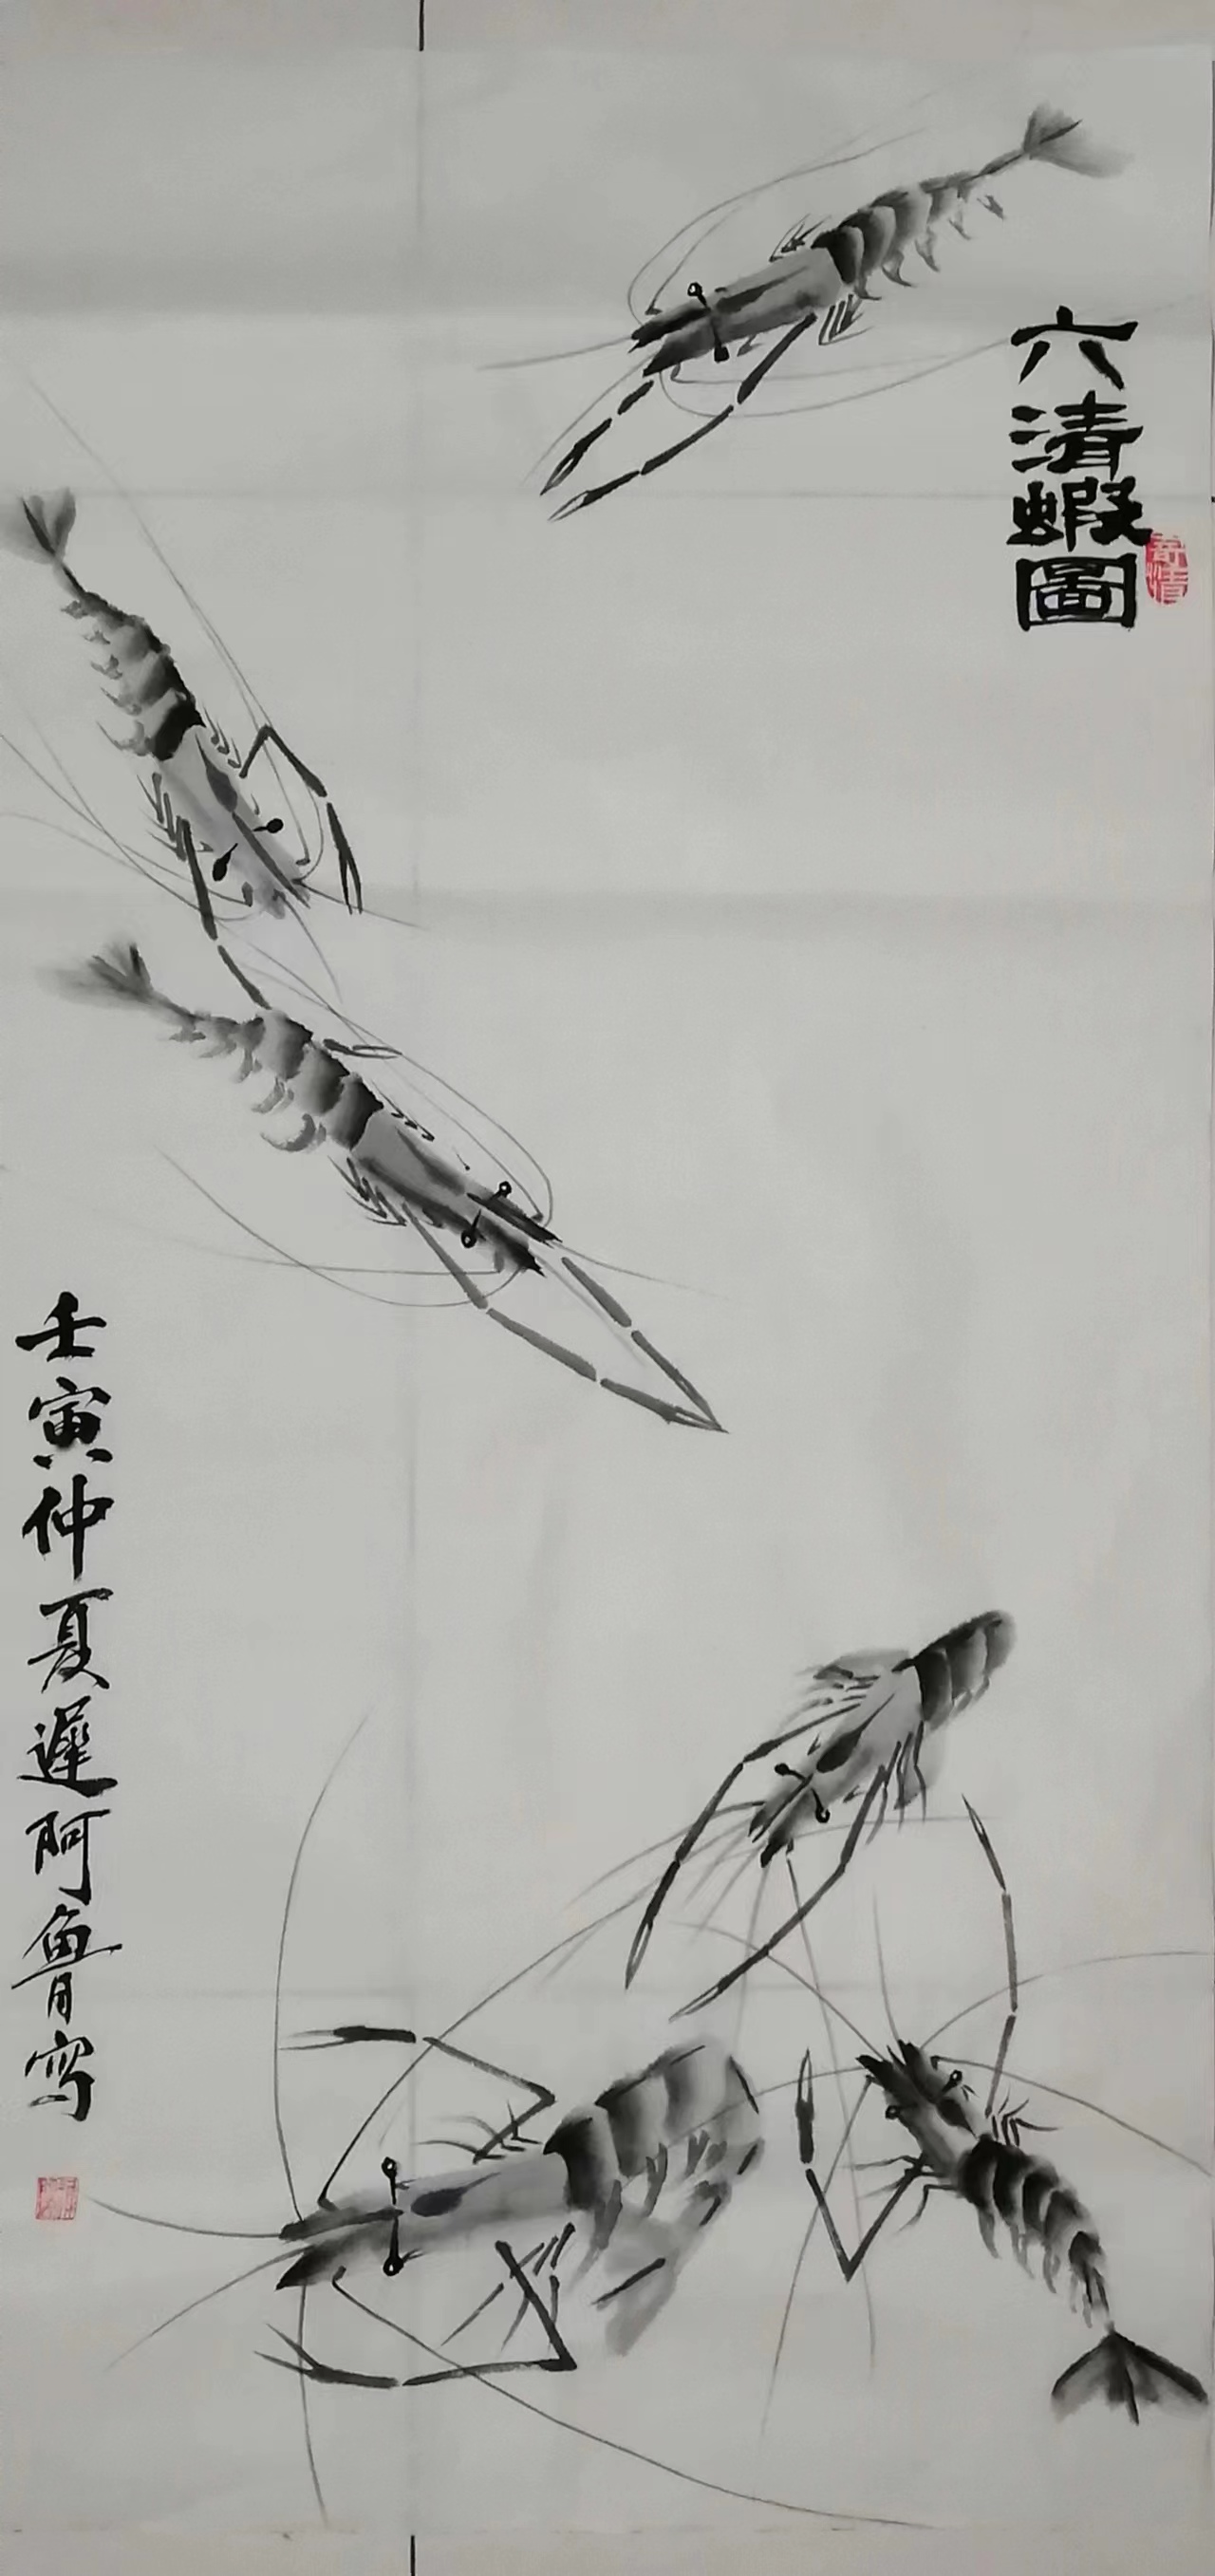 六清蝦圖
壬寅仲夏遲阿魯寫